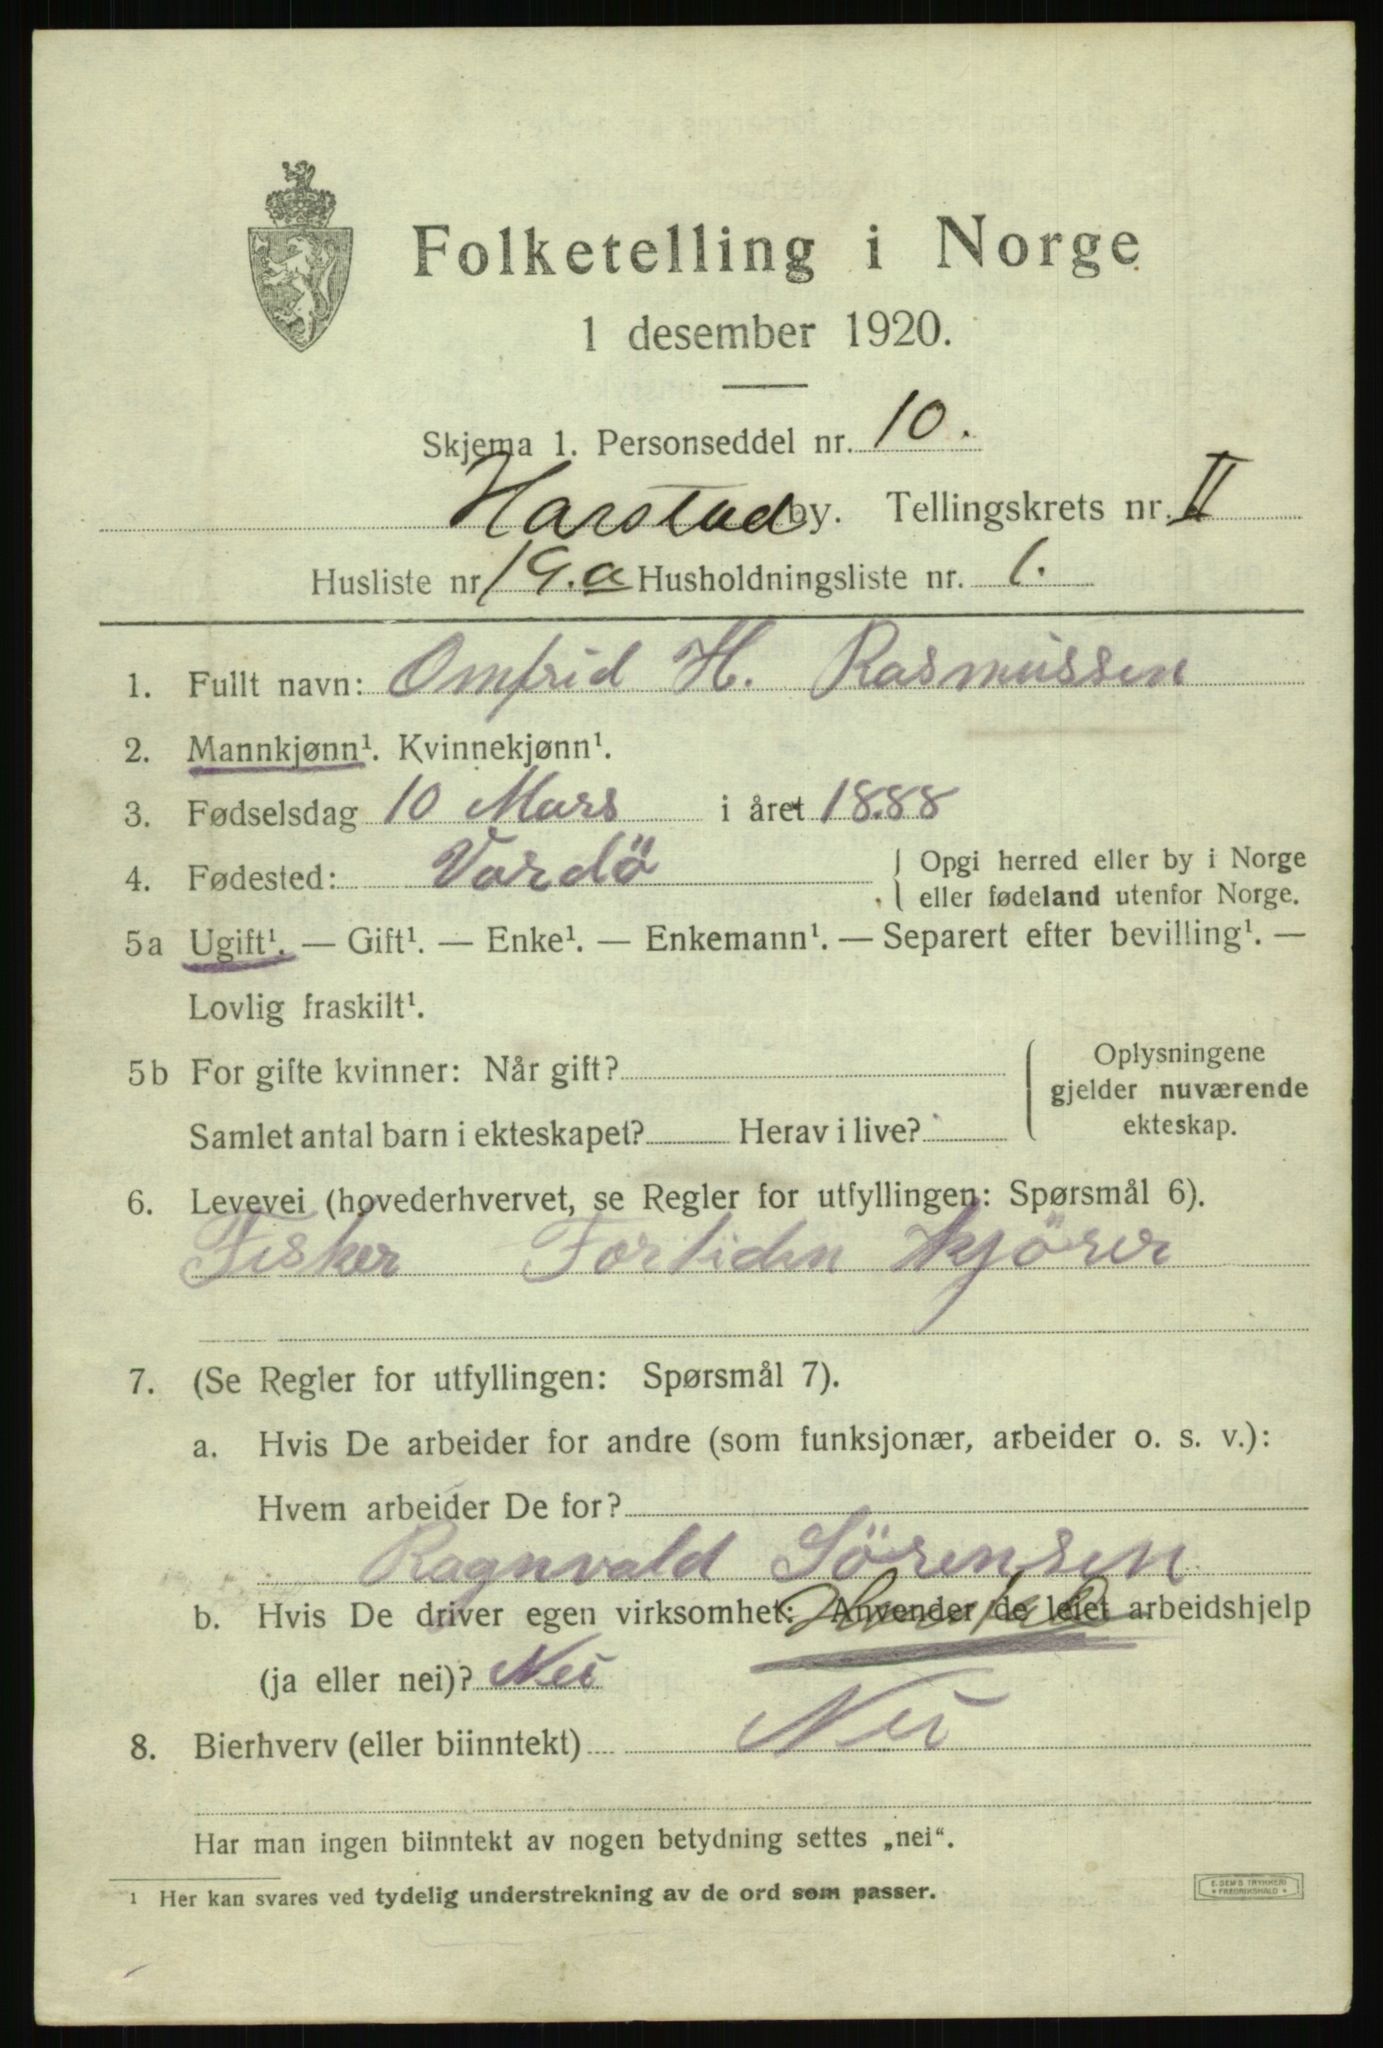 Folketelling i Norge
1 desember 1920.
Skjema 1. Personseddel nr. 10.
Harstad by. Tellingskrets nr. II
Husliste nr 19.a Husholdningsliste nr. 1.
1. Fullt navn: Omfrid H. Rasmussen
2. Mannkjønn¹. Kvinnekjønn¹.
3. Fødselsdag 10 Mars i året 1888
4. Fødested: Vardö { Opgi herred eller by i Norge
eller fødeland utenfor Norge.
5a Ugift¹. — Gift¹. — Enke¹. — Enkemann¹. — Separert efter bevilling¹. —
Lovlig fraskilt¹.
5b For gifte kvinner: Når gift?
Samlet antal barn i ekteskapet? Herav i live?
{ Oplysningene
gjelder nuværende
ekteskap.
6. Levevei (hovederhvervet, se Regler for utfyllingen: Spørsmål 6).
Fisker Fortiden kjörer
7. (Se Regler for utfyllingen: Spørsmål 7).
a. Hvis De arbeider for andre (som funksjonær, arbeider o. s. v.):
Hvem arbeider De for?
Ragnvald Sörensen
b. Hvis De driver egen virksomhet: Anvender de leiet arbeidshjelp
(ja eller nei)? Nei
8. Bierhverv (eller biinntekt) Nei
Har man ingen biinntekt av nogen betydning settes „nei“.
¹ Her kan svares ved tydelig understrekning av de ord som passer.
E. SEM'S TRYKKERI
FREDRIKSHALD